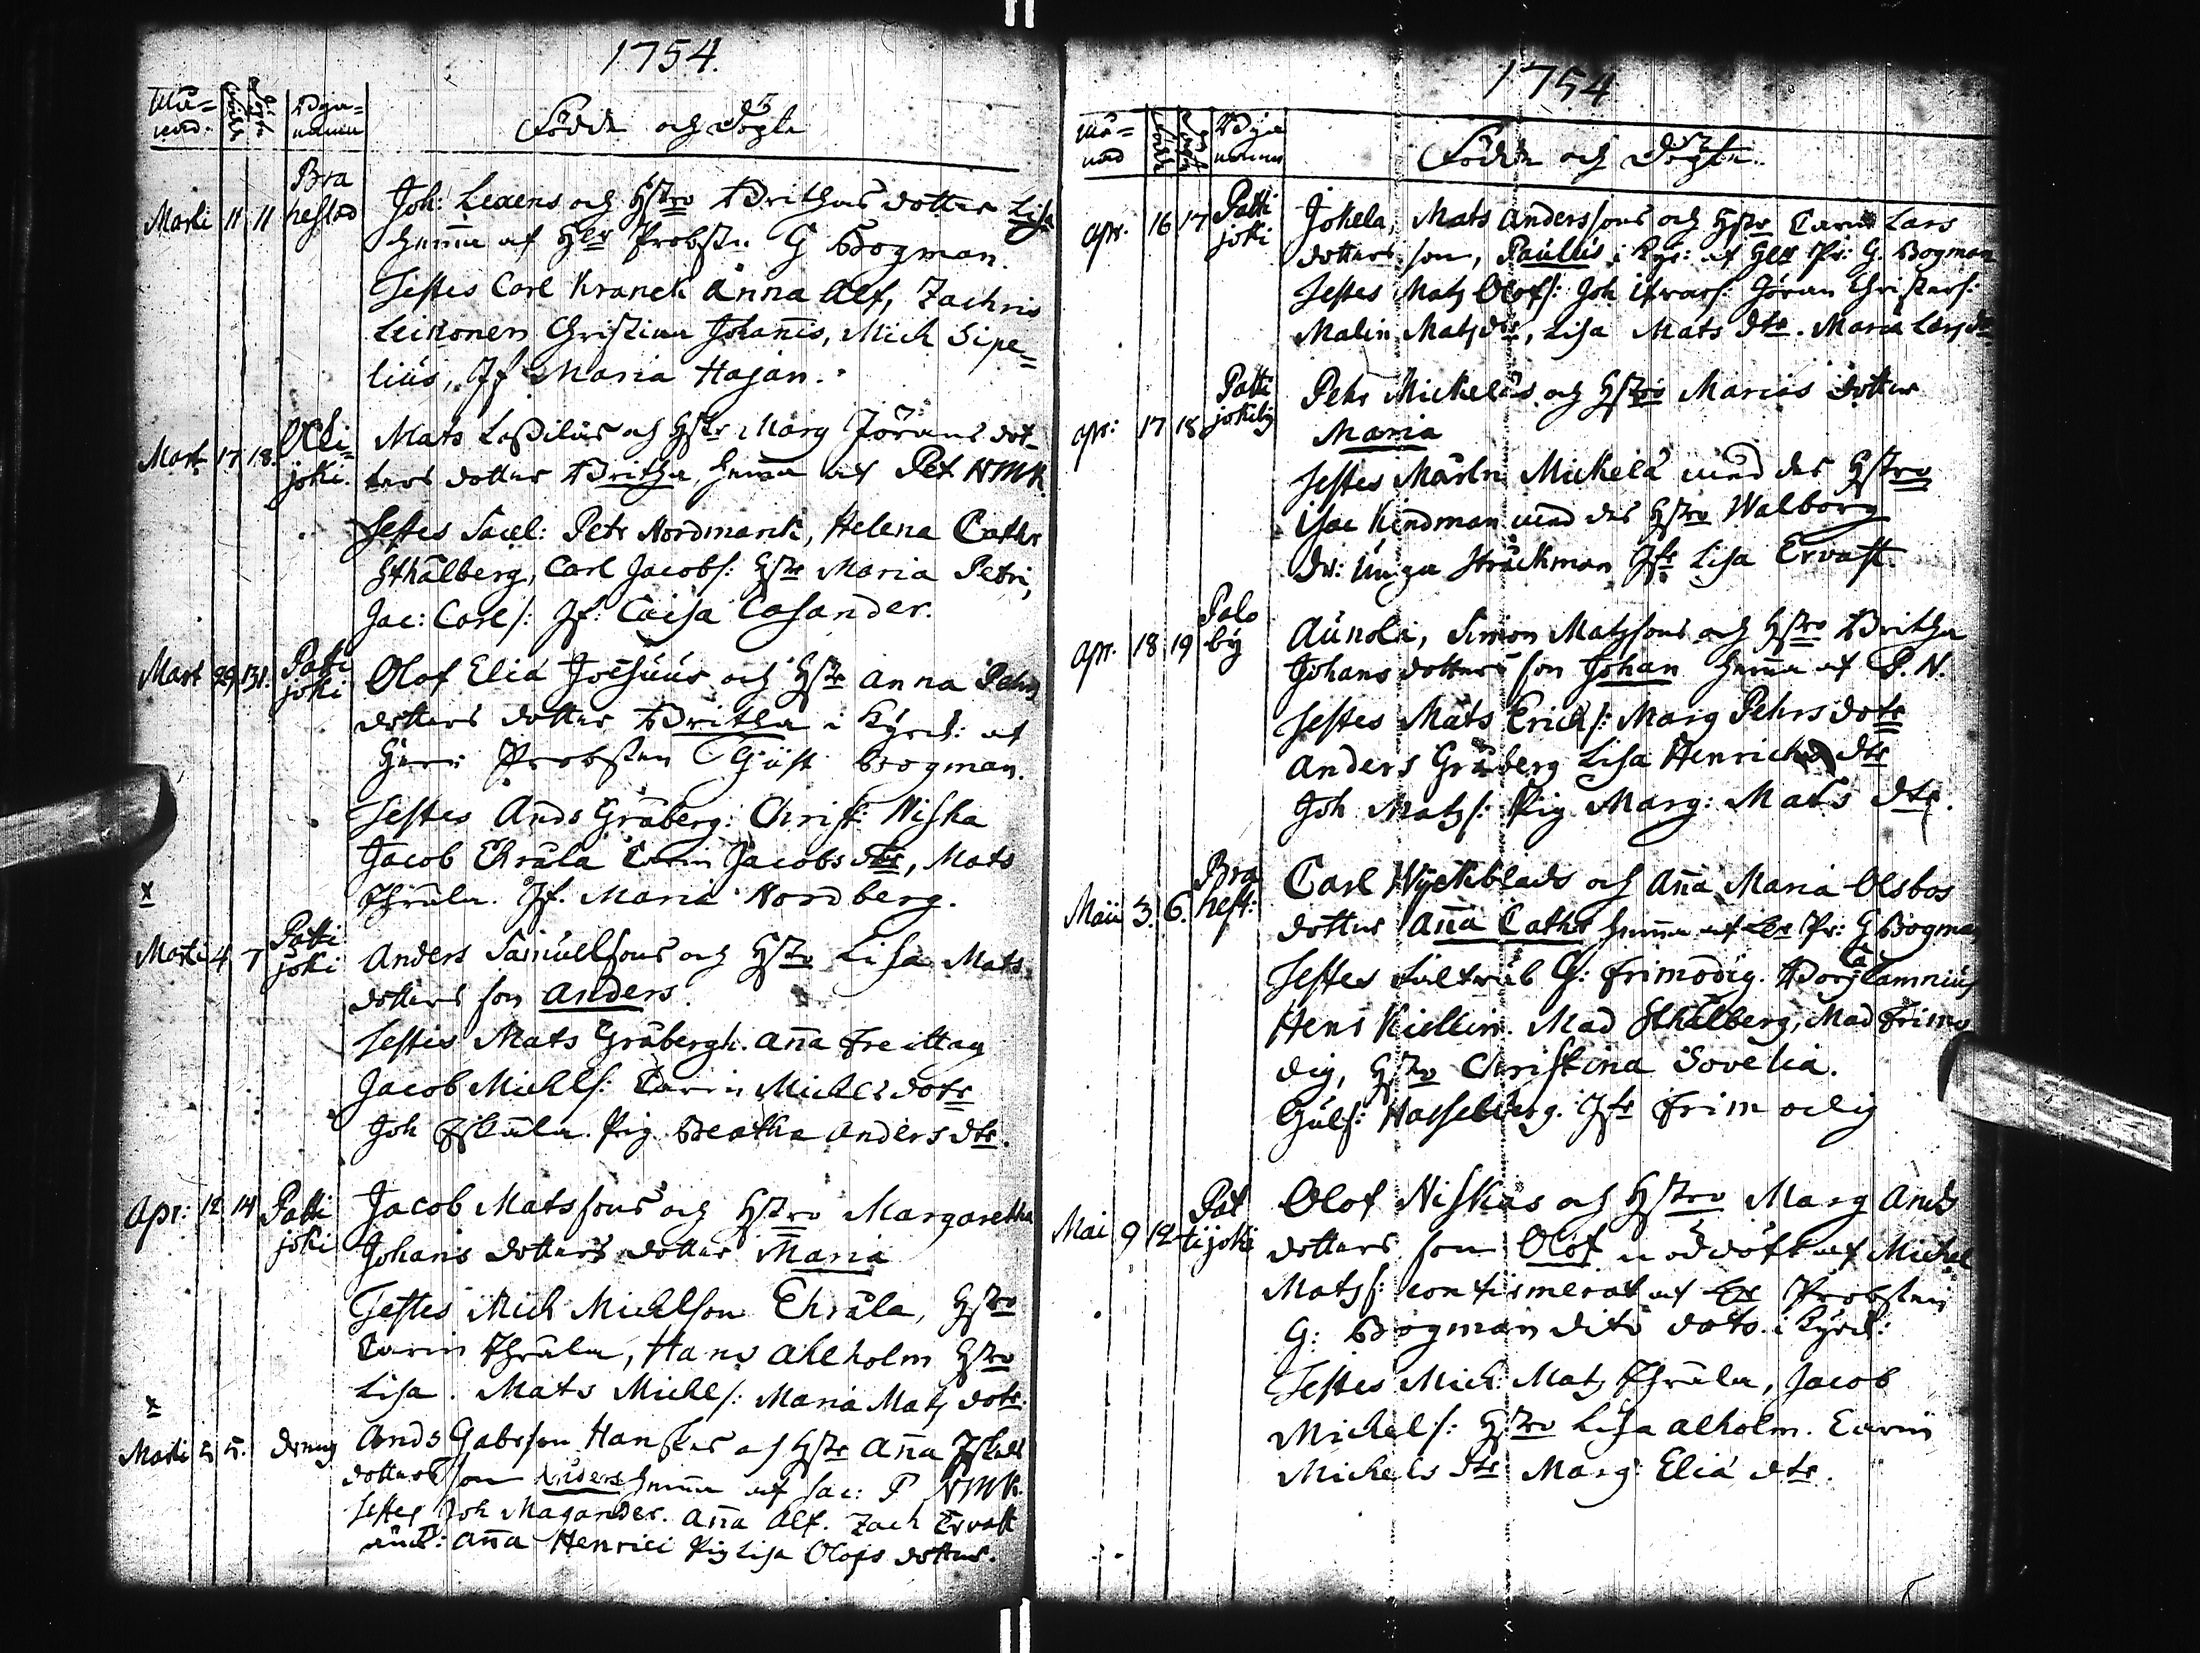 1754.
Må= nad.
Födde
Döpte
Bya= namn
Födde och Döpte
Bra hestad
Martii 11 11 Joh: Lexens och Hstro Brithas dotter Lisa
hema af HEr Probstn G Bogman.
Testes Carl Kranck Anna Alf, Zachris
Leikonen Christina Johanis, Mich Sipe=
lius, Jf Maria Hajan.
Mart 17 18. Olki= joki. Mats Lassilas och Hstr Marg Jörans dot=
ters dotter Britha hema af Pet NMK.
Testes Sacel: Petr Nordmanck, Helena Cathr
Sthålberg, Carl Jacobs: Hstr Maria Petri,
Jac: Carls: Jf: Caisa Casander.
Mart 29 31. Patti joki Olof Eliä Josuas och Hstr Anna Pehrs
dotters dotter Britha i Kyrck: af
Herr Probsten Gust Bogman.
Testes Ands Gråberg: Christ: Niska
Jacob Ehråla Carin Jacobs dtr, Mats
Ehråla. Jf. Maria Nordberg.
x
Martii 4 7 Patti joki Anders Samuelsons och Hstro Lisa Mats
dotters son Anders.
Testes Mats Gråbergh. Aña Freittag
Jacob Michls: Carin Michels dotr
Joh Eskola. Pig. Beatha Anders dtr.
Apr: 12 14 Patti joki Jacob Matssons och Hstro Margaretha
Johans dotters dotter Maria
Testes Mich Michlson Ehråla, Hstro
Carin Ehråla, Hans Ahlholm Hstro
Lisa. Mats Michls: Maria Matz dotr.
x
Martii 5 5. Ands Gabrson Hanskas och Hstr Aña
dotters son Anders hema af Sac: P NMK.
Testes Joh Magander. Aña Alf. Zach Ervast
Aña Henrici Pig Lisa Olofs dotter.
1754
Må= nad
Födde
Döpte
Bya namn
Födde och Döpte.
Apr. 16 17 Patti joki Jokela, Mats Anderssons och Hstr Carin Lars
dotters son, Paulus i Kyr: af HEr Pr: G. Bogman
Testes Matz Olofs: Joh Göran Christers:
Malin Matz dtr, Lisa Mats dtr. Maria Lars dr
Apr: 17 18 Patti jokiby Pehr Mickeläs och Hstros Marias dotter
Maria
Testes Mårtn Mickelä med des Hstro
Isac Kendman med des Hstro Walborg
Dr: unga Sträckman Jfr Lisa Ervast.
Apr. 18 19 Palo by Aunola, Simon Matzsons och Hstro Britha
Johans dotters son Johan hema af P. N.
Testes Mats Erichs: Marg Pehrs dotr
Anders Gråberg Lisa Henrichs dtr
Joh Matzs: Pig Marg: Mats dtr.
Maii 3. 6. Bra hest: Carl Wyckblads och Aña Maria Olsbos
dotter Aña Cathr hema af Pr: G Bogman
Testes G: Frimodig. Lamnius
Hens Kiellin. Mad Sthålberg, Mad Frimo
dig, Hstro Christina Sovelia.
Guls: Hasselberg. Jfr Frimodig
Mai 9 12 Pat tijoki Olof Niskas och Hstro Marg Ands
dotters son Olof nöddöpt af Michel
Matzs: confirmerat af Probsten
G: Bogman dito dato i Kyrck:
Testes Mich: Matz Ehråla, Jacob
Michels: Hstro Lisa Alholm. Carin
Michels dtr Marg: Eliä dtr.